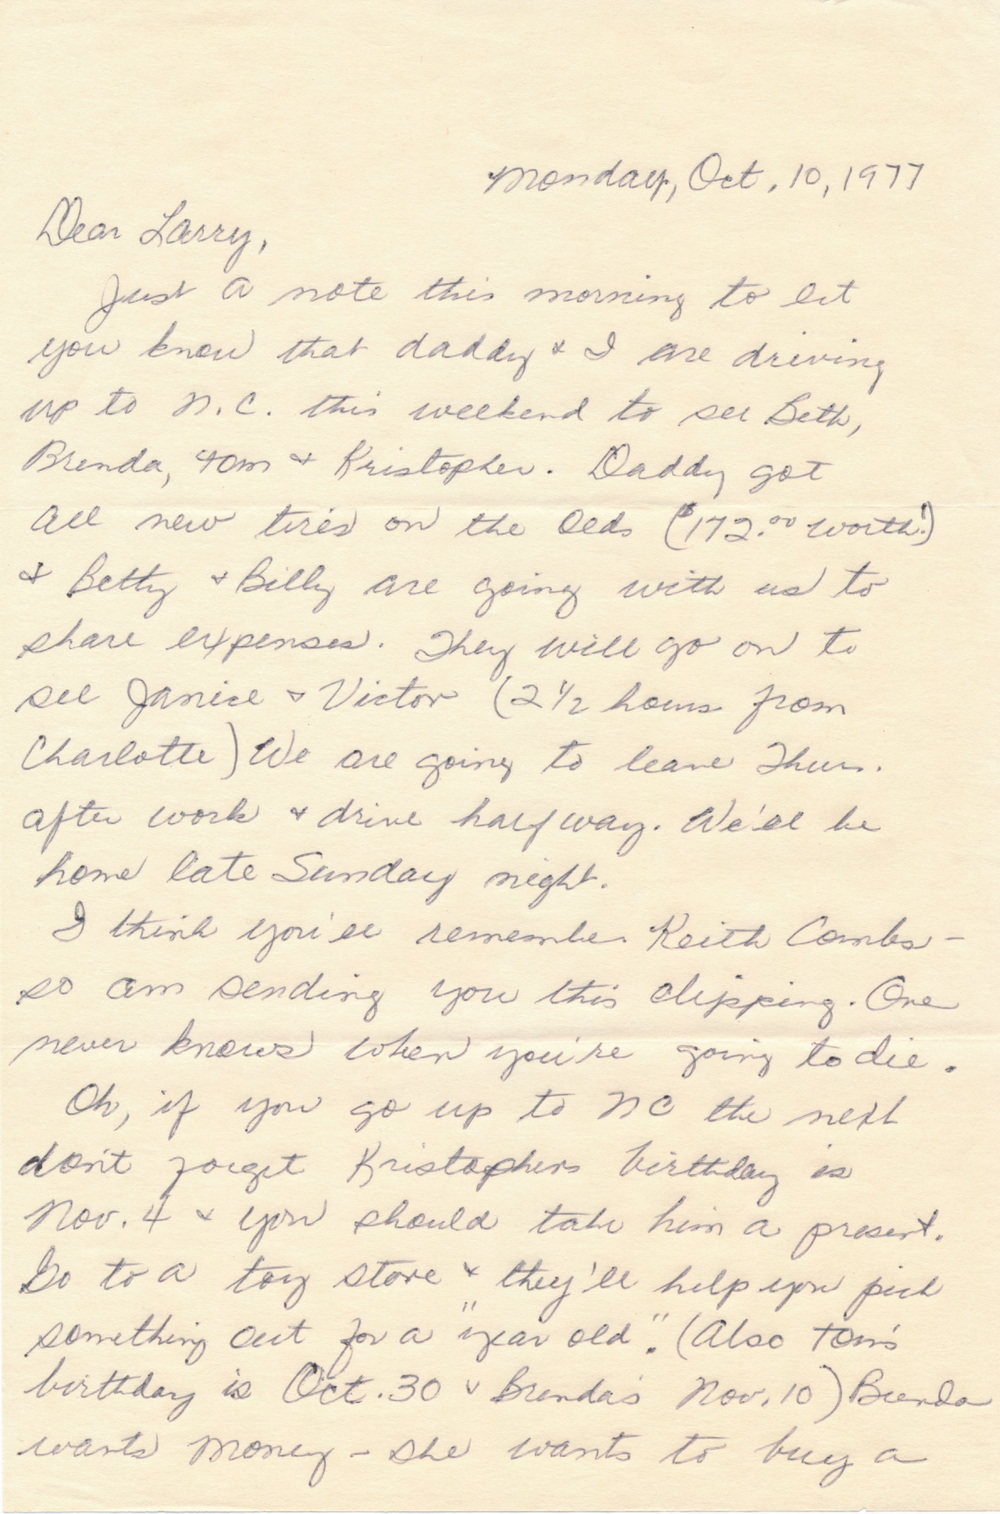 Monday, Oct. 10, 1977
Dear Larry,
Just a note this morning to let
you know that daddy & I are driving
up to N.C. this weekend to see Beth,
Brenda, Tom & Kristopher. Daddy got
all new tires on the Olds ($172.00 worth!)
& Betty & Billy are going with us to
share expenses. They will go on to
see Janice & Victor (2 1/2 hours from
Charlotte) We are going to leave Thurs.
after work & drive halfway. We'll be
home late Sunday night.
I think you'll remember Keith Combs -
so am sending you this clipping. One
never knows when you're going to die.
Oh, if you go up to NC the next
don't forget Kristophers birthday is
Nov. 4 & you should take him a present.
Go to a toy store & they'll help you pick
something out for a "year old". (Also Tom's
birthday is Oct. 30 & Brenda's Nov. 10) Brenda
wants money - she wants to buy a